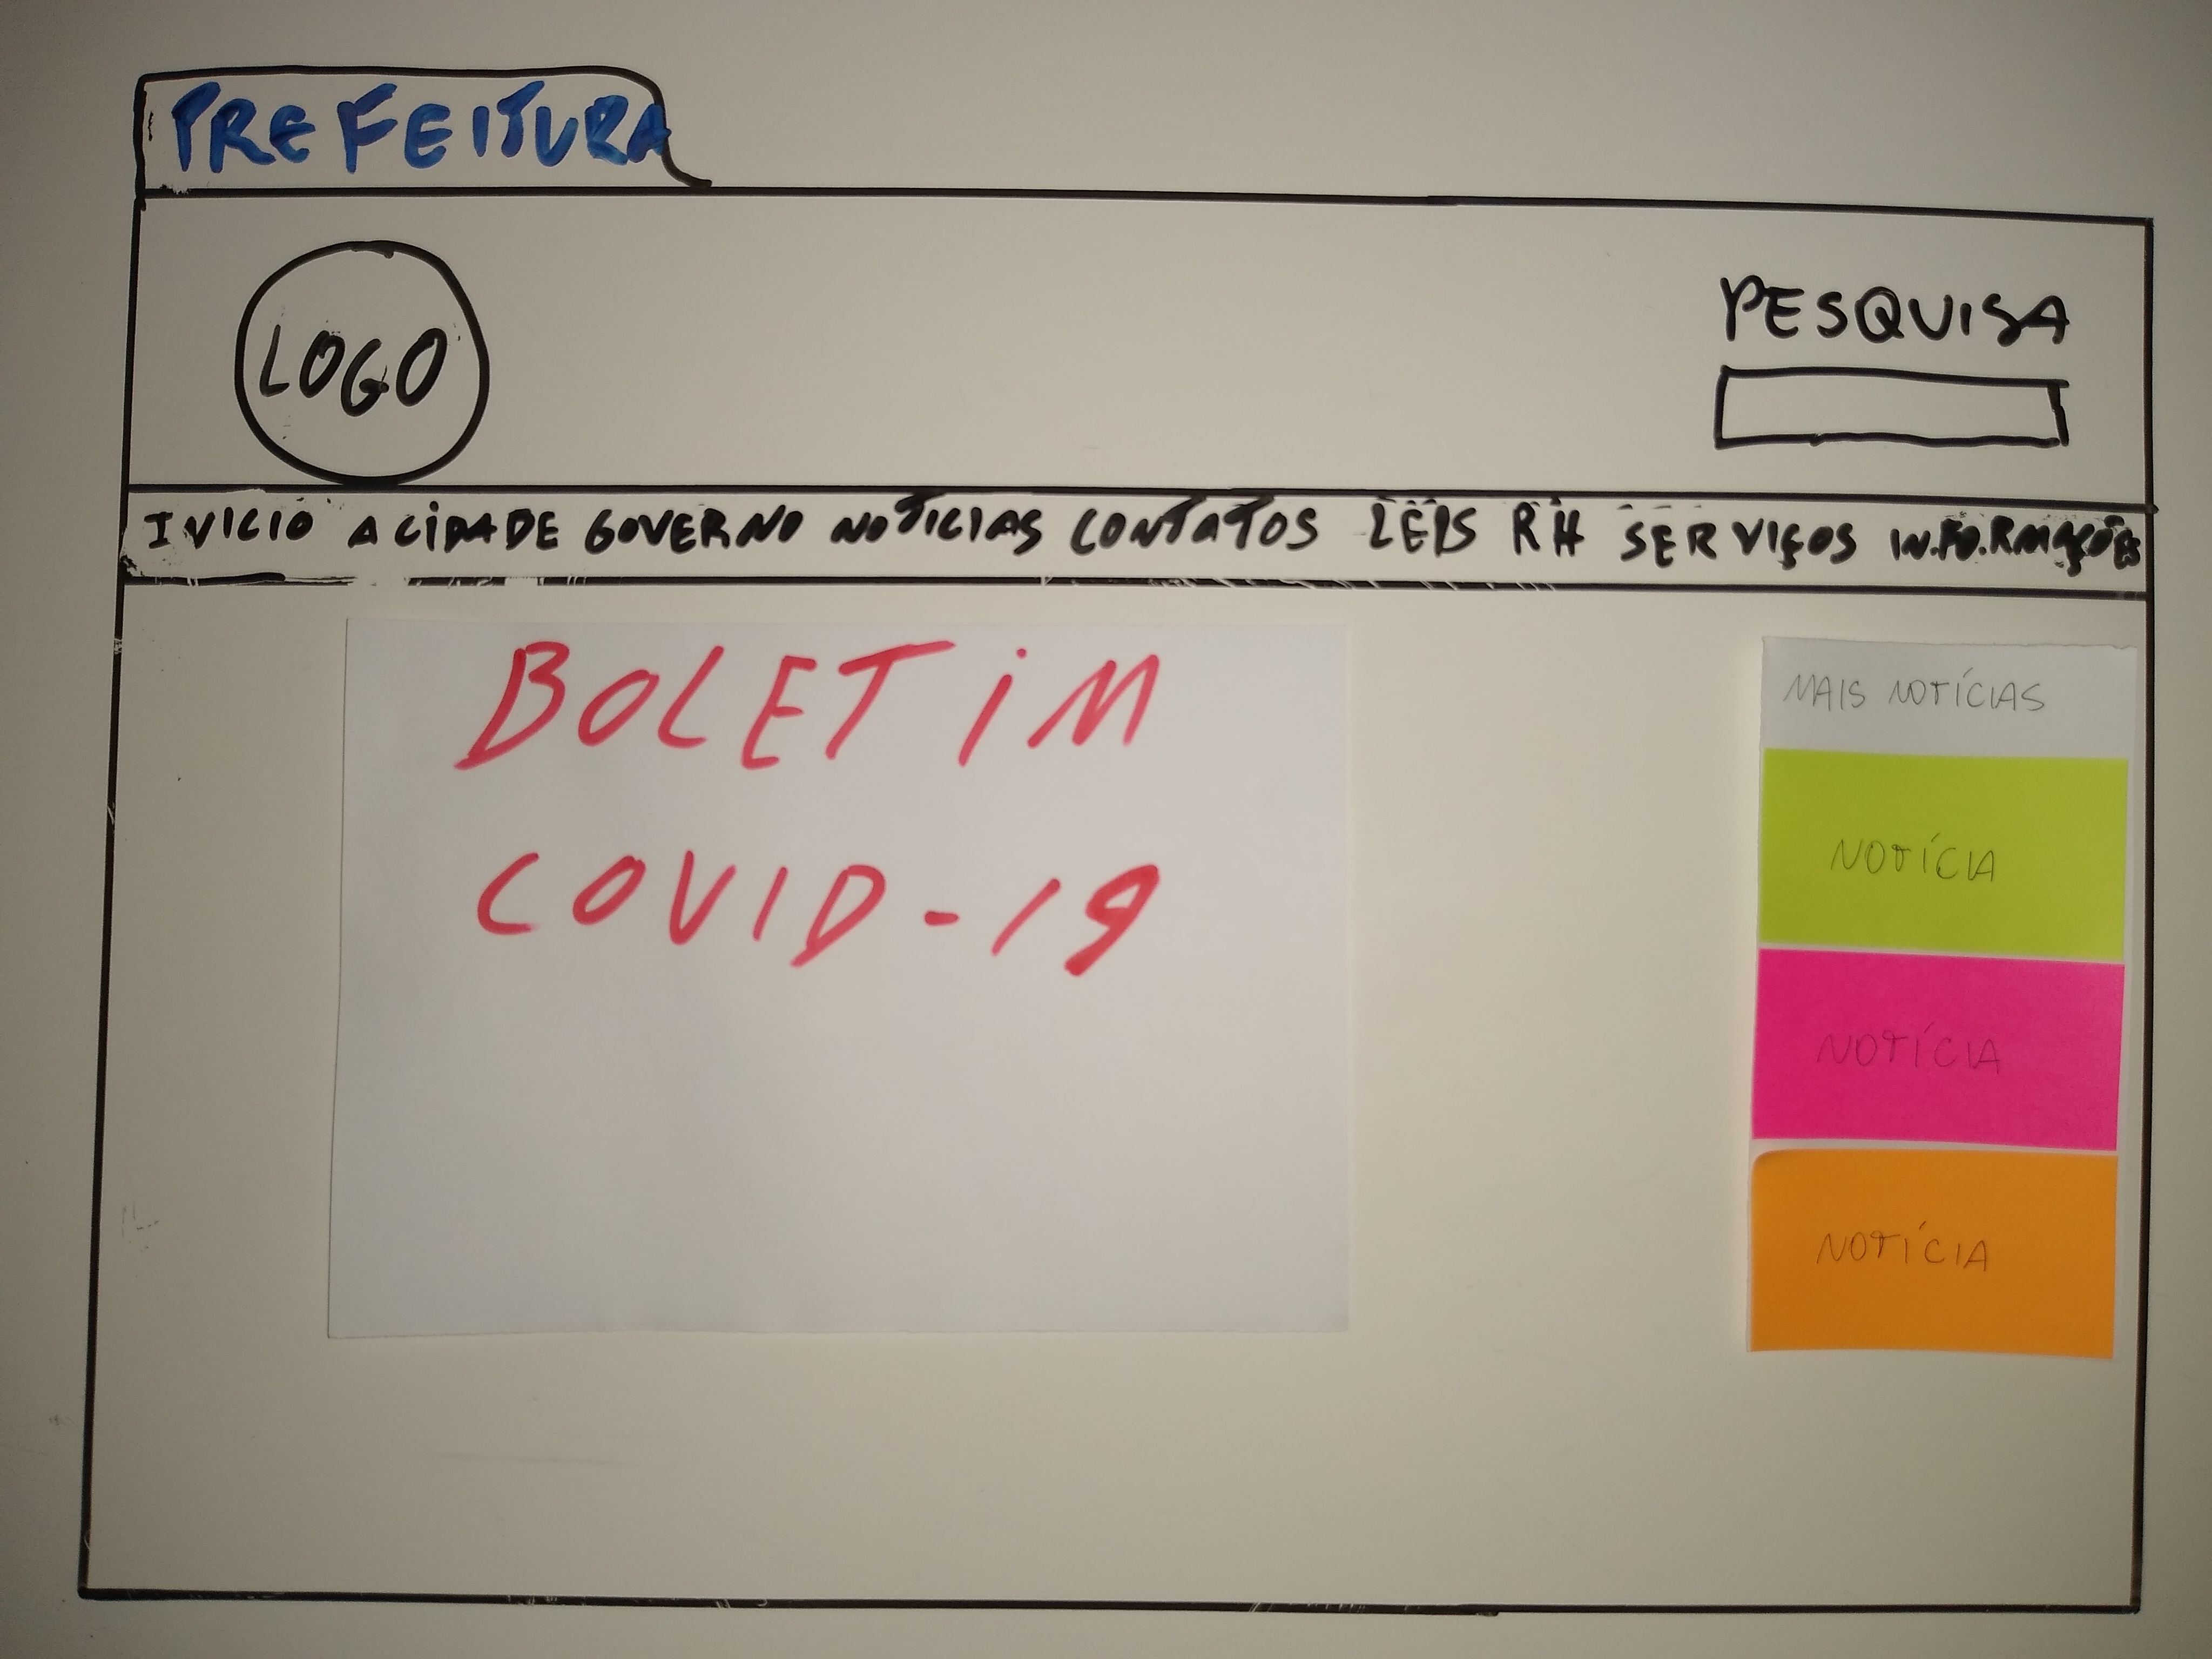 PREFEITURA
LOGO
PESQUISA
INICIO A CIDADE GOVERNO NOTICIAS CONTATOS LEIS RH SERVIÇOS INFORMAÇÕES
BOLETIM
COVID-19
MAIS NOTÍCIAS
NOTÍCIA
NOTÍCIA
NOTÍCIA